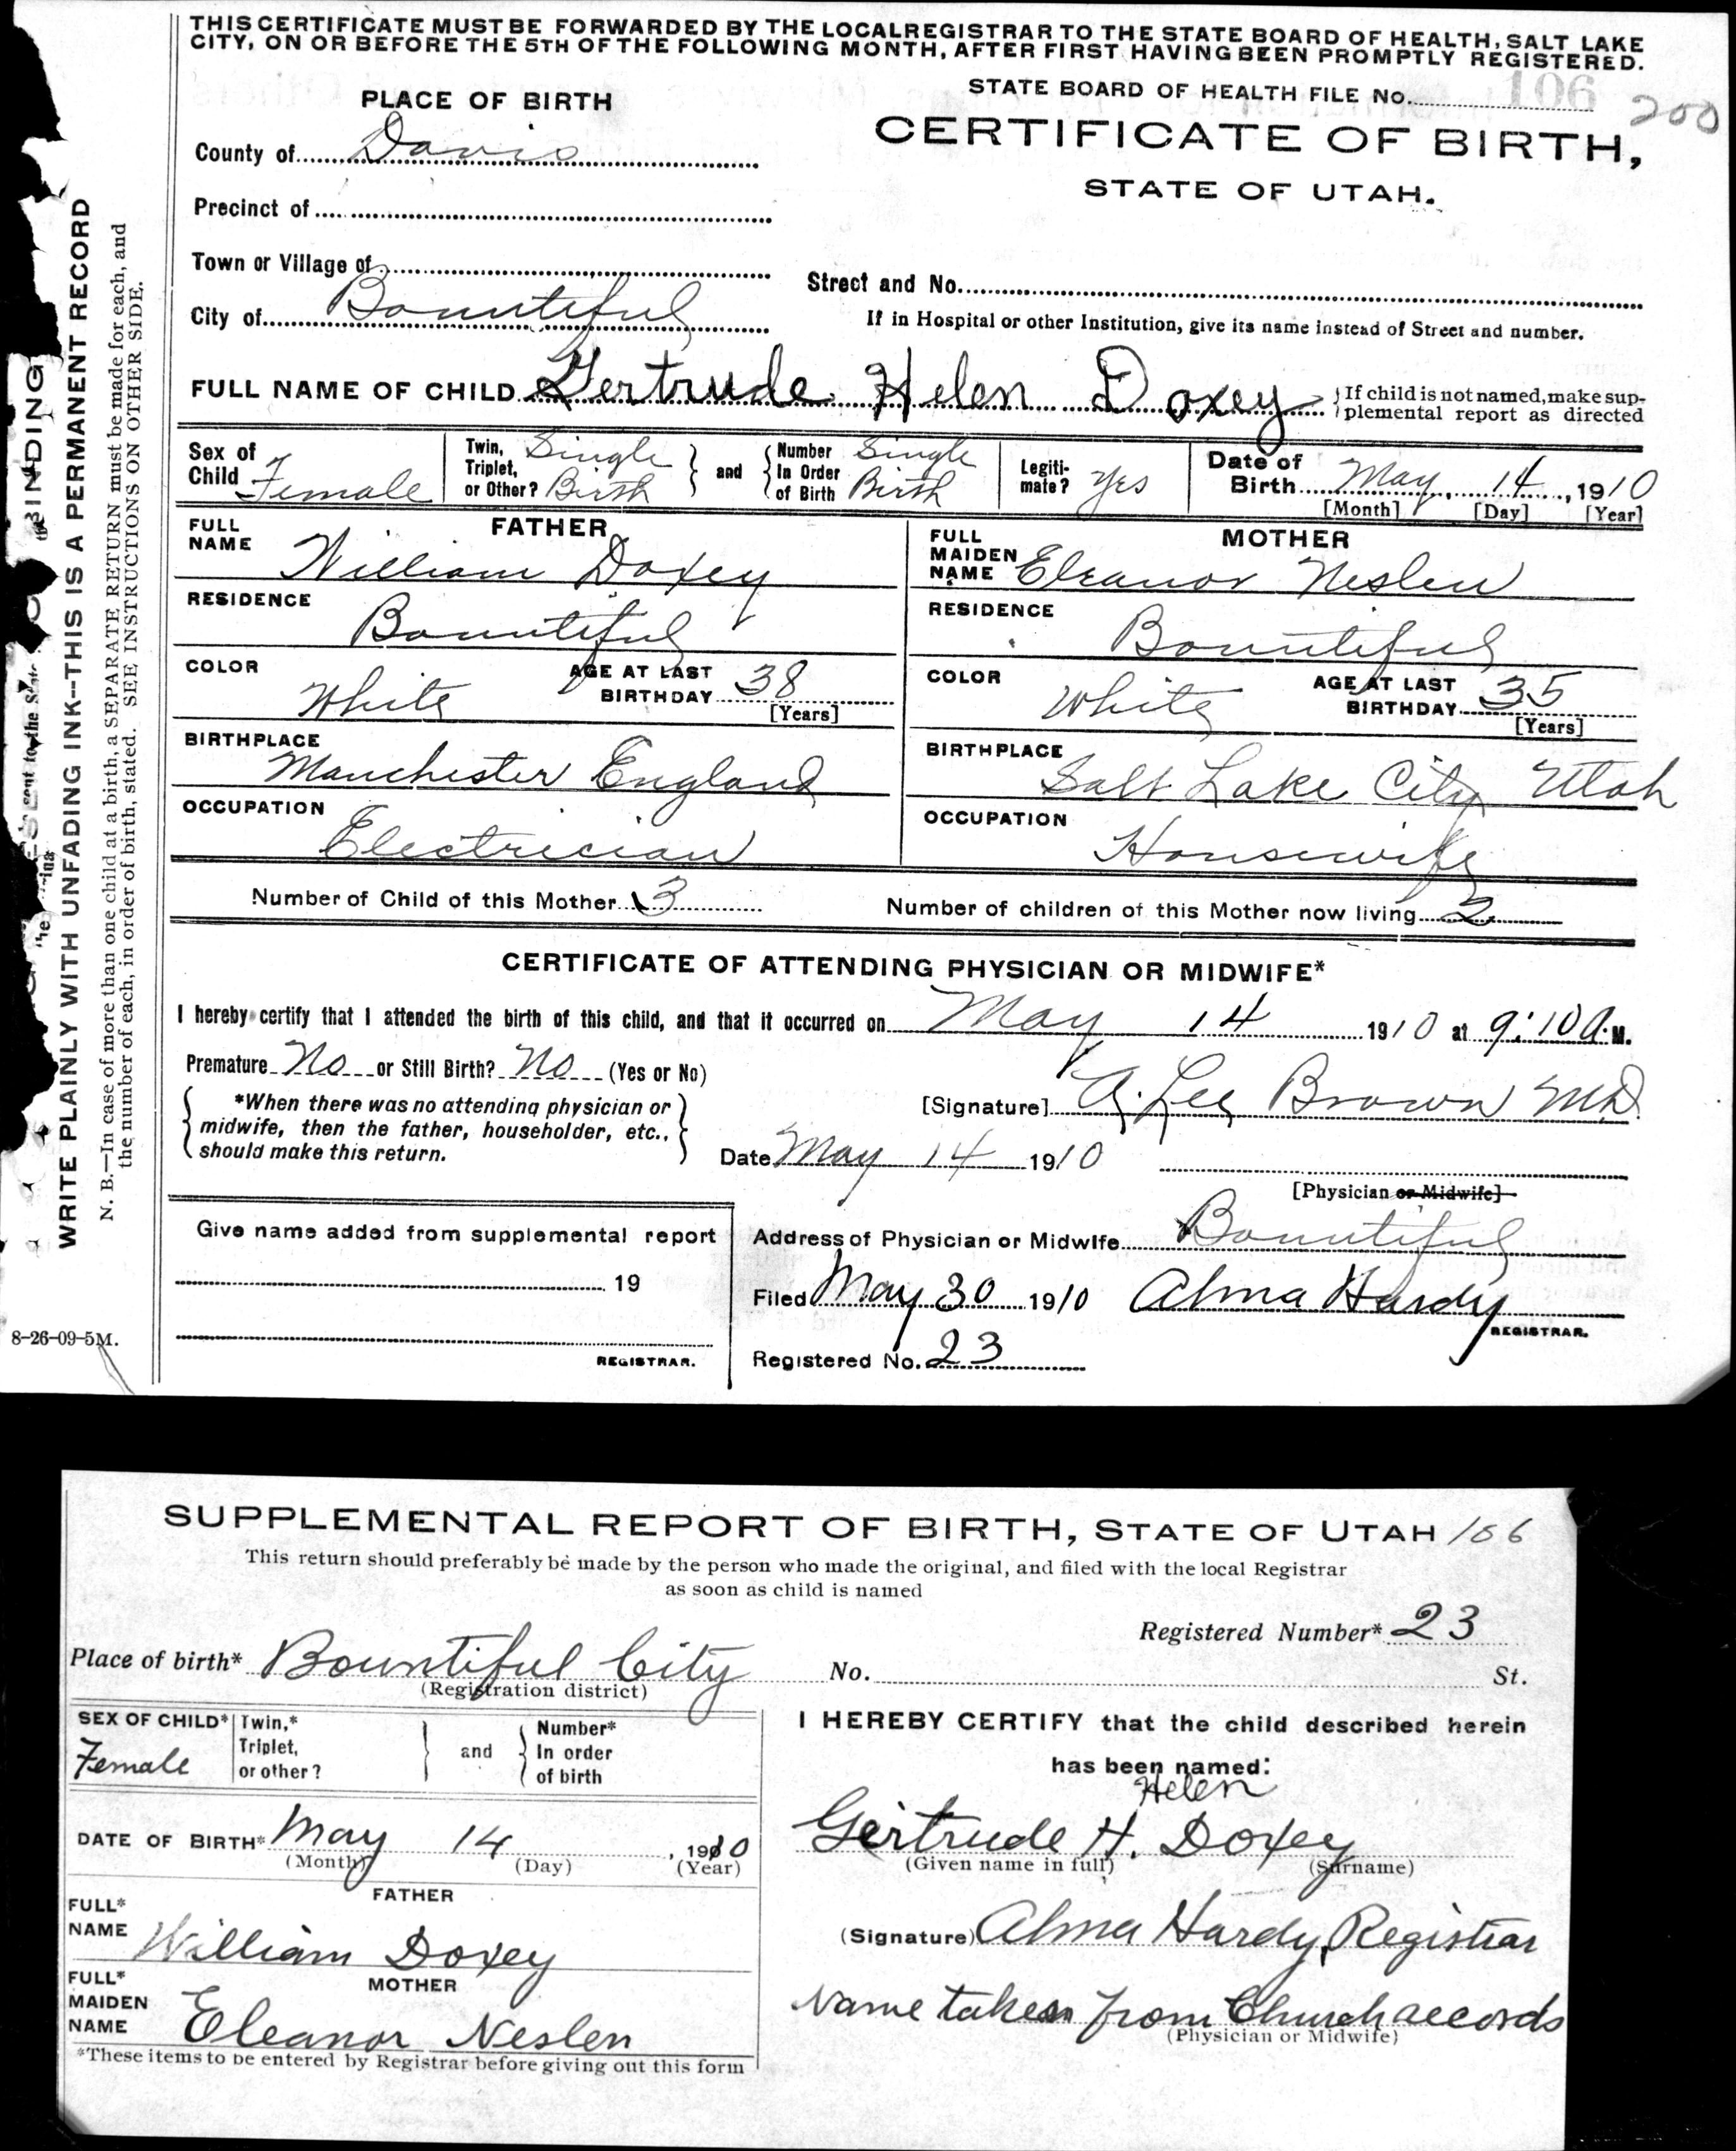 THIS CERTIFICATE MUST BE FORWARDED BY THE LOCAL REGISTRAR TO THE STATE BOARD OF HEALTH, SALT LAKE
CITY, ON OR BEFORE THE 5TH OF THE FOLLOWING MONTH, AFTER FIRST HAVING BEEN PROMPTLY REGISTERED.
STATE BOARD OF HEALTH FILE No. 106 200
PLACE OF BIRTH
CERTIFICATE OF BIRTH,
STATE OF UTAH.
County of Davis
Precinct of
Town or Village of
Street and No.
City of Bountiful
If in Hospital or other Institution, give its name instead of Street and number.
FULL NAME OF CHILD Gertrude Helen Doxey {If child is not named, make sup-
plemental report as directed
Sex of Child Female
Twin, Triplet, or Other? Single Birth } and { Number In Order of Birth Single Birth
Legiti-mate? Yes
Date of Birth May 14, 1910
[Month] [Day] [Year]
FATHER
FULL NAME William Doxey
MOTHER
FULL MAIDEN NAME Eleanor Neslen
RESIDENCE Bountiful
RESIDENCE Bountiful
COLOR White AGE AT LAST BIRTHDAY 38 [Years]
COLOR White AGE AT LAST BIRTHDAY 35 [Years]
BIRTHPLACE Manchester England
BIRTHPLACE Salt Lake City Utah
OCCUPATION Electrician
OCCUPATION Housewife
Number of Child of this Mother 3 Number of children of this Mother now living 2
CERTIFICATE OF ATTENDING PHYSICIAN OR MIDWIFE*
I hereby certify that I attended the birth of this child, and that it occurred on May 14 1910 at 9:10 A.M.
Premature No or Still Birth? No (Yes or No)
{ *When there was no attending physician or
midwife, then the father, householder, etc.,
should make this return. }
[Signature] A. Lee Brown MD
Date May 14 1910
[Physician or Midwife]
Give name added from supplemental report
19
REGISTRAR.
Address of Physician or Midwife Bountiful
Filed May 30 1910 Alma Hardy
REGISTRAR.
Registered No. 23
8-26-09-5M.
BINDING
WRITE PLAINLY WITH UNFADING INK--THIS IS A PERMANENT RECORD
N. B.—In case of more than one child at a birth, a SEPARATE RETURN must be made for each, and
the number of each, in order of birth, stated. SEE INSTRUCTIONS ON OTHER SIDE.
SUPPLEMENTAL REPORT OF BIRTH, STATE OF UTAH 106
This return should preferably be made by the person who made the original, and filed with the local Registrar
as soon as child is named
Registered Number* 23
Place of birth* Bountiful City No. St.
(Registration district)
SEX OF CHILD* Female
Twin,* Triplet, or other? } and { Number* In order of birth
I HEREBY CERTIFY that the child described herein
has been named:
Helen
Gertrude H. Doxey
(Given name in full) (Surname)
DATE OF BIRTH* May 14, 1910
(Month) (Day) (Year)
FATHER
FULL* NAME William Doxey
(Signature) Alma Hardy, Registrar
MOTHER
FULL* MAIDEN NAME Eleanor Neslen
Name taken from Church records
(Physician or Midwife)
*These items to be entered by Registrar before giving out this form